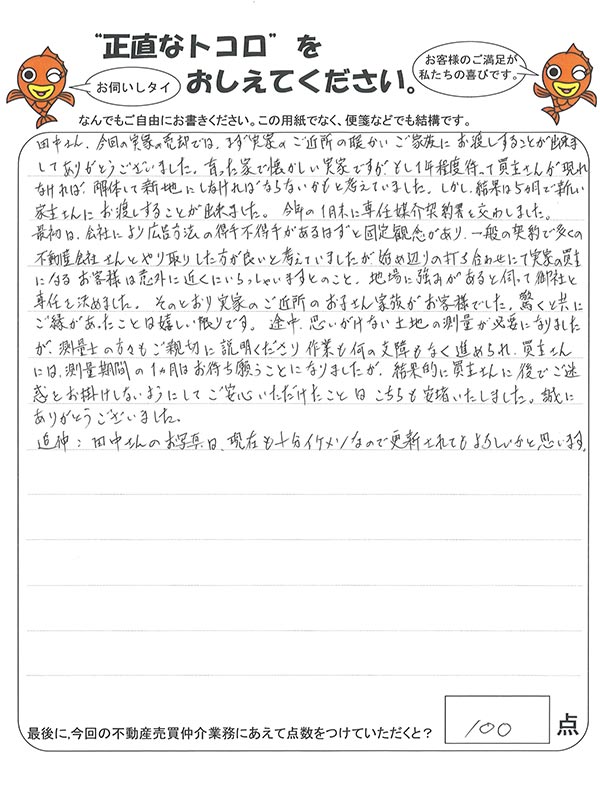 "正直なトコロ"を
おしえてください。
お伺いしタイ
お客様のご満足が
私たちの喜びです。
なんでもご自由にお書きください。この用紙でなく、便箋などでも結構です。
田中さん、今回の実家の売却では、まず実家のご近所の暖かいご家族にお渡しすることが出来ま
してありがとうございました。育った家で懐かしい実家ですが、もし1年程度待って買主さんが現れ
なければ、解体して新地にしなければならないかもと考えていました。しかし、結果は5カ月で新しい
家主さんにお渡しすることが出来ました。今年の1月末に専任媒介契約書を交わしました。
最初は、会社により広告方法の得手不得手があるはずと固定観念があり、一般の契約で多くの
不動産会社さんとやり取りした方が良いと考えていましたが、始め辺りの打ち合わせにて実家の買主
になるお客様は意外に近くにいらっしゃいますとのこと、地場に強みがあると伺って御社と
専任を決めました。そのとおり実家のご近所のお子さん家族がお客様でした。驚くと共に
ご縁があったことは嬉しい限りです。途中、思いがけない土地の測量が必要になりました
が、測量士の方々もご親切に説明くださり作業も何の支障もなく進められ、買主さん
には、測量期間の1カ月はお待ち願うことになりましたが、結果的に買主さんに後でご迷
惑とお掛けしないようにしてご安心いただけたことはこちらも安堵いたしました。誠に
ありがとうございました。
追伸：田中さんのお写真は、現在も十分イケメンなので更新されてもよろしいかと思います。
最後に、今回の不動産売買仲介業務にあえて点数をつけていただくと？
100
点